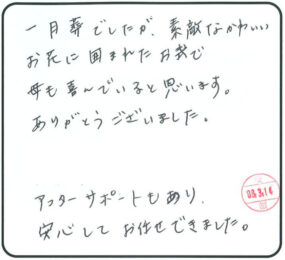 一日葬でしたが、素敵なかわいい
お花に囲まれたお式で
母も喜んでいると思います。
ありがとうございました。
アフターサポートもあり、
安心して お任せできました。